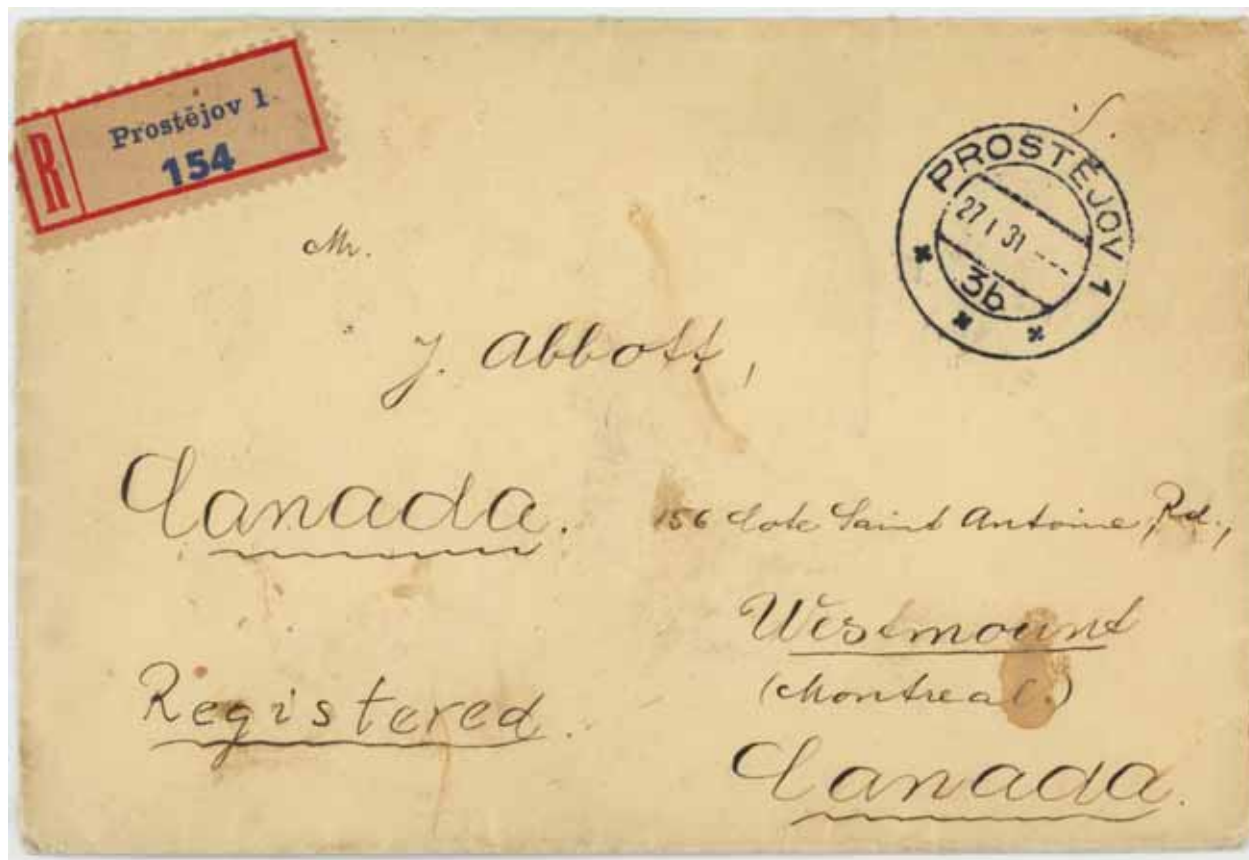 R Prostějov 1
154
PROSTĚJOV 1
27 I 31
3b
Mr.
J. Abbott,
Canada.
156 Cote Saint Antoine, Rd.,
Westmount
(Montreal.)
Registered.
Canada.